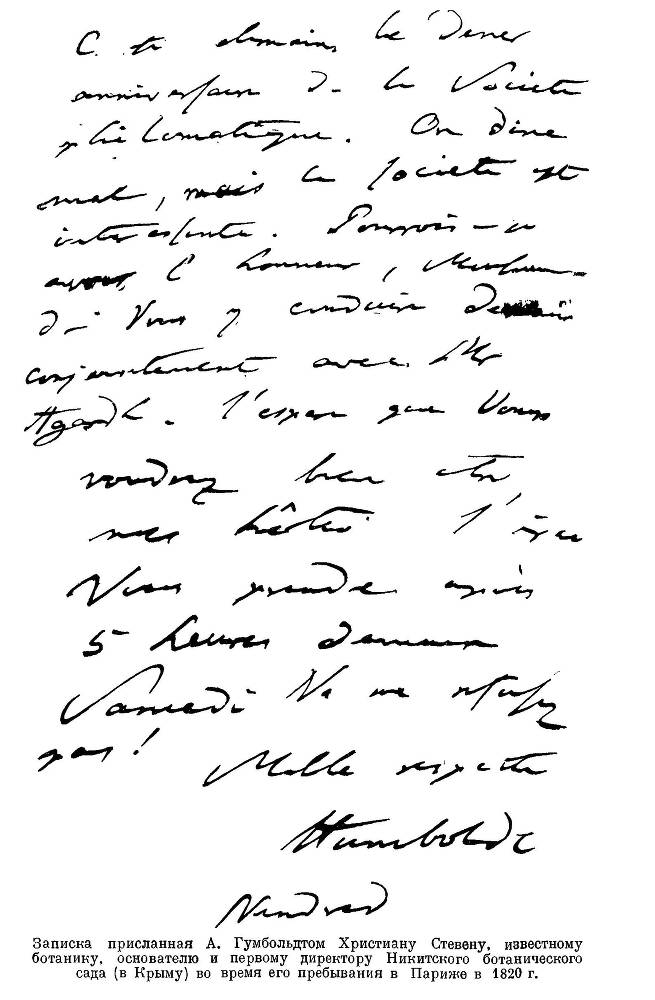 C'est demain le diner
anniversaire de la Société
philomatique. On dine
mal, mais la société est
interessante. Pourrois-je
avoir l'honneur, Monsieur
de Vous y conduire
conjointement avec Mr
Agardh. J'espere que Vous
voudrez bien etre
mes hôtes. J'irai
Vous prendre après
5 heures demain
Samedi Ne me refusez
pas!
Mille respects
Humboldt
Vendred
Записка присланная А. Гумбольдтом Христиану Стевену, известному
ботанику, основателю и первому директору Никитского ботанического
сада (в Крыму) во время его пребывания в Париже в 1820 г.